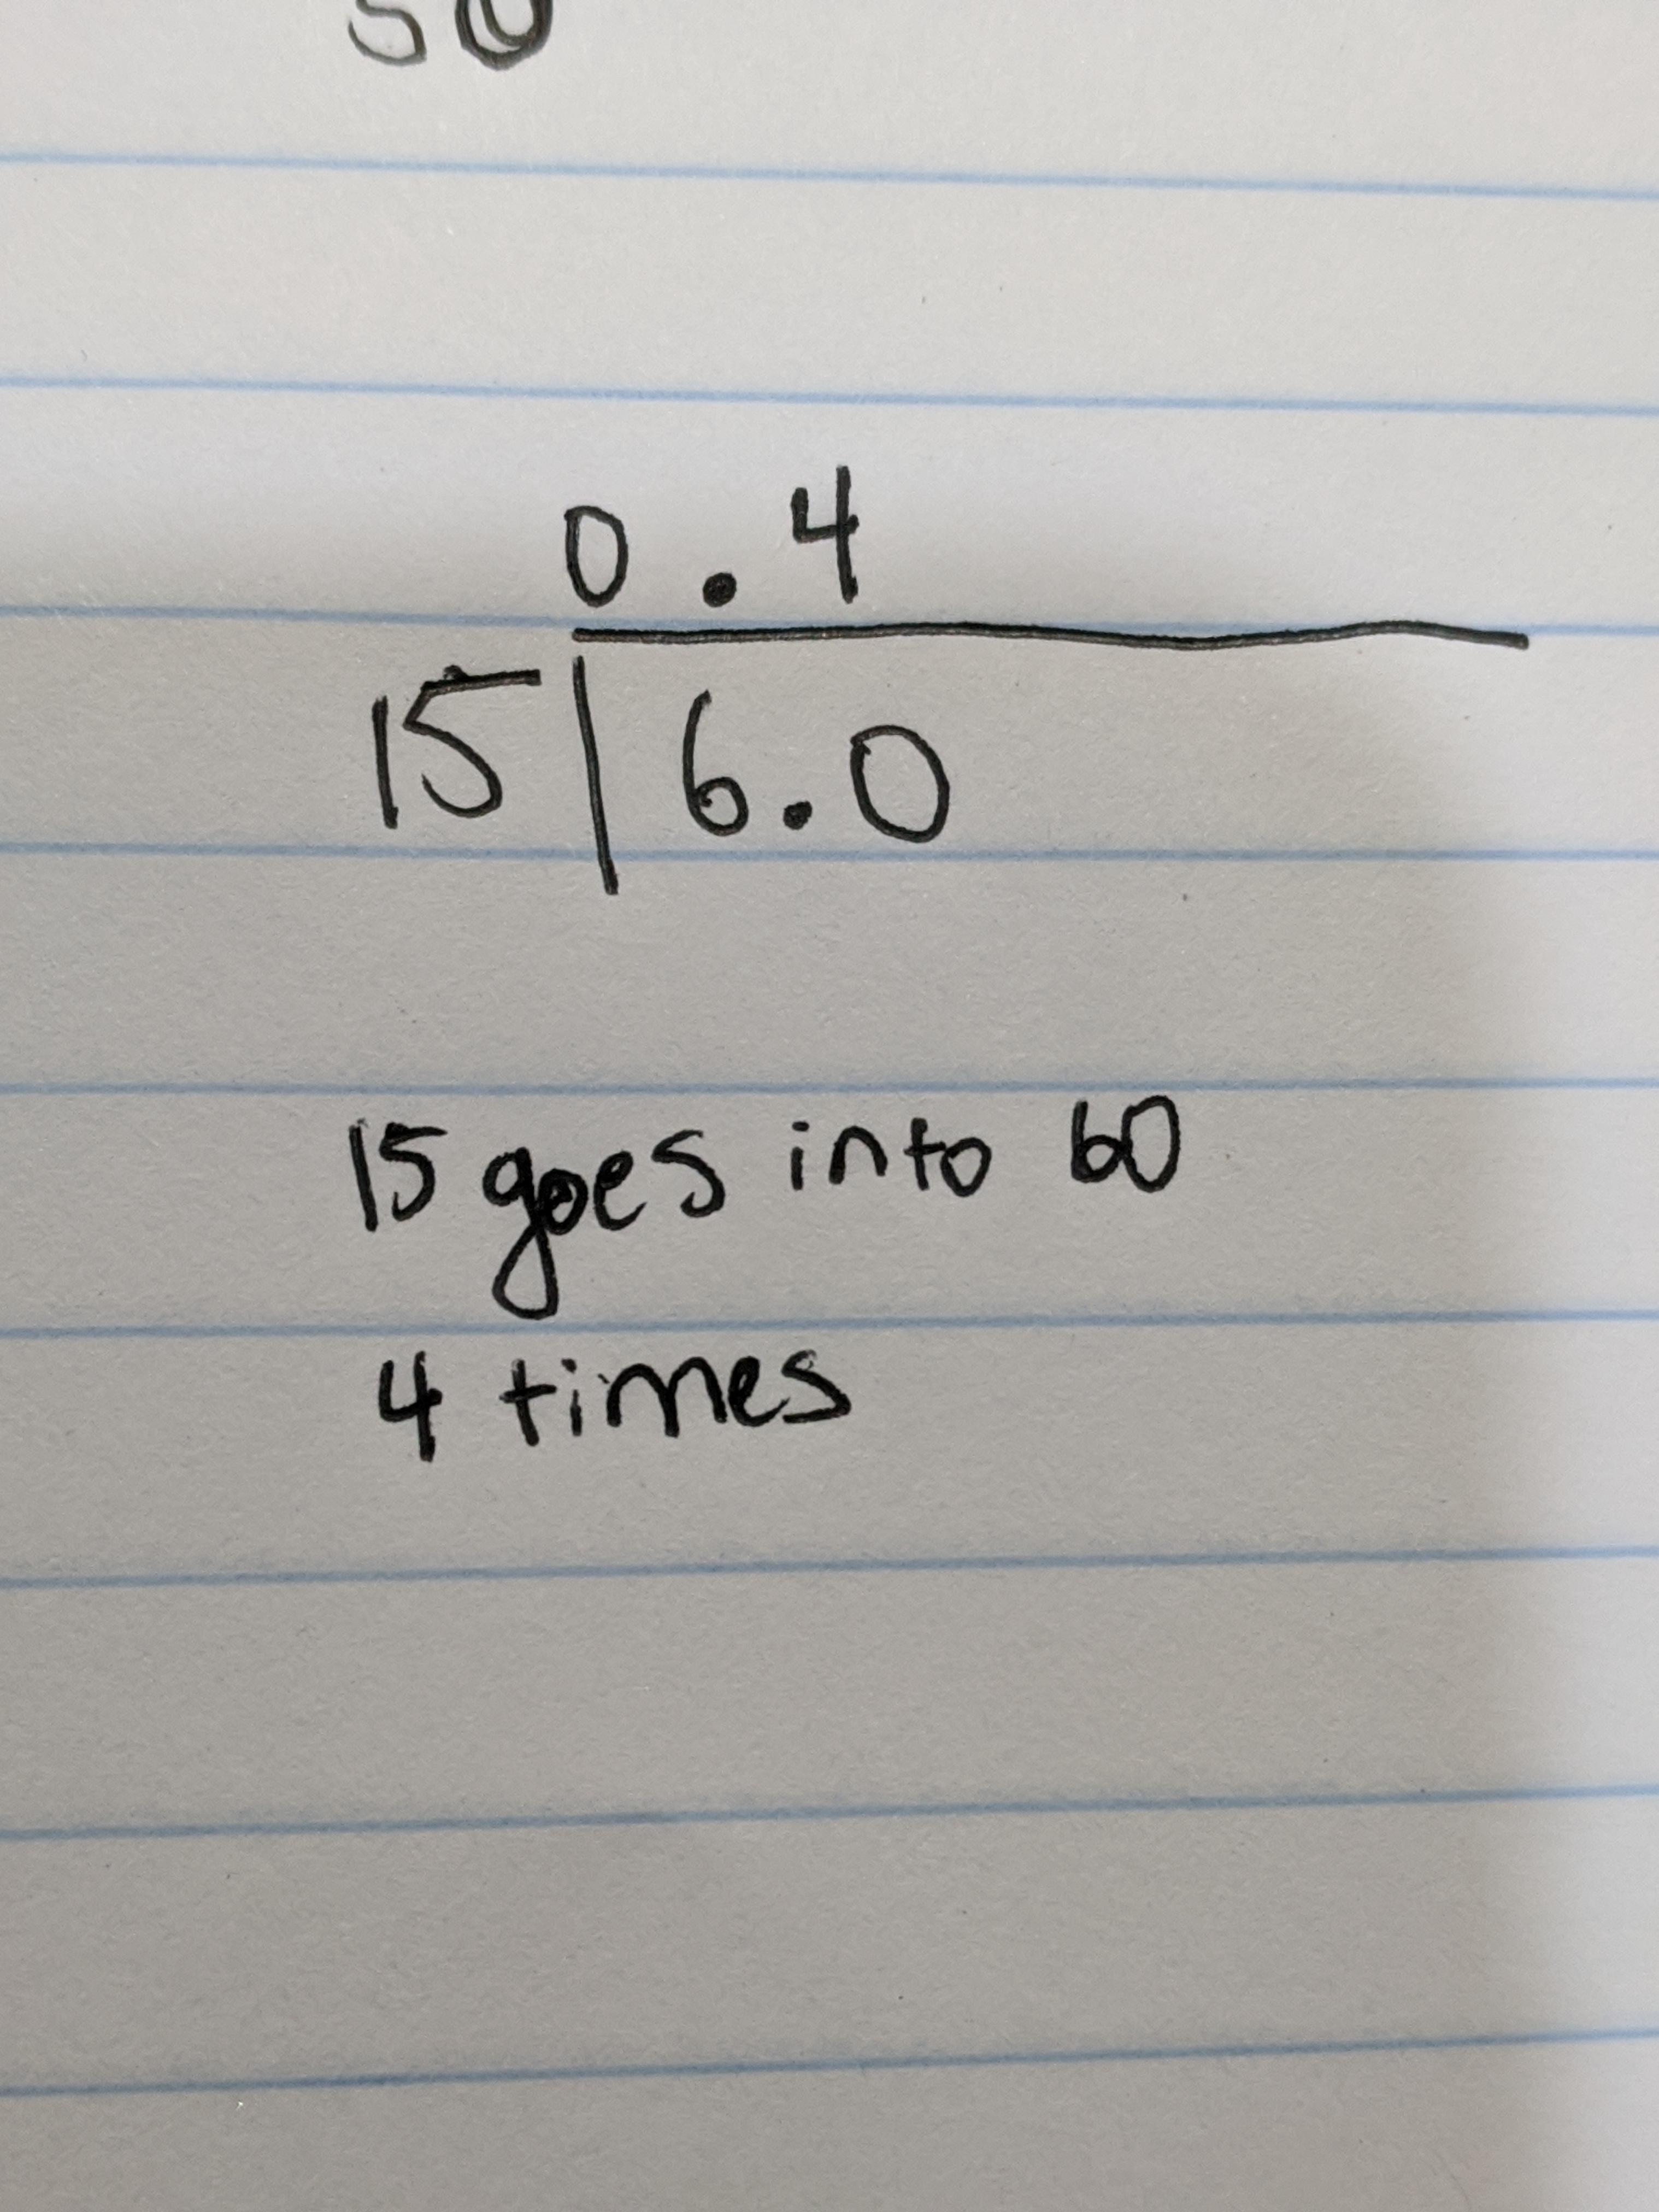 50
0.4
15 6.0
15 goes into 60
4 times